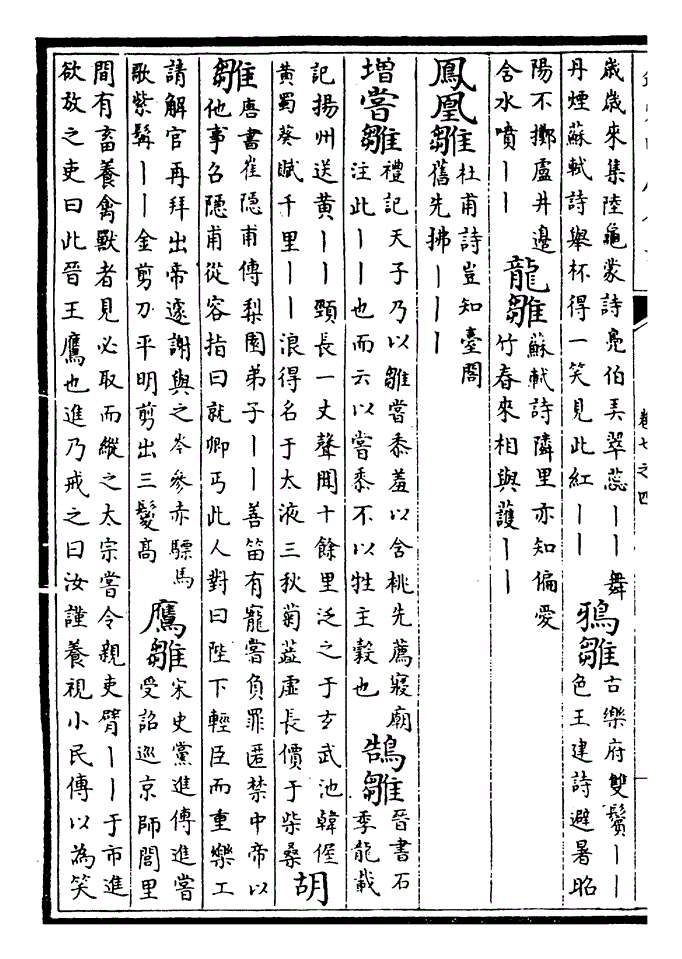 歲歲來集陸龜蒙詩鳧伯弄翠蕊丨丨舞
丹煙蘇軾詩舉杯得一笑見此紅丨丨
鴉雛
古樂府雙鬢丨丨
色王建詩避暑昭
陽不擲盧井邊
含水噴丨丨
龍雛
蘇軾詩隣里亦知偏愛
竹春來相與護丨丨
鳳凰雛
杜甫詩豈知臺閣
舊先拂丨丨丨
增嘗雛
禮記天子乃以雛嘗黍羞以含桃先薦寢廟
注此丨丨也而云以嘗黍不以牲主穀也
鵠雛
晉書石
季龍載
記揚州送黄丨丨頸長一丈聲聞十餘里泛之于玄武池韓偓
黄蜀葵賦千里丨丨浪得名于太液三秋菊蕋虛長價于柴桑
胡
雛
唐書崔隠甫傳梨園弟子丨丨善笛有寵嘗負罪匿禁中帝以
他事召隠甫從容指曰就卿丐此人對曰陛下輕臣而重樂工
請解官再拜出帝遽謝與之岑參赤驃馬
歌紫髯丨丨金剪刀平明剪出三鬉高
鷹雛
宋史黨進傳進嘗
受詔巡京師閭里
間有畜養禽獸者見必取而縱之太宗嘗令親吏臂丨丨于市進
欲放之吏曰此晉王鷹也進乃戒之曰汝謹養視小民傳以為笑
卷七之四